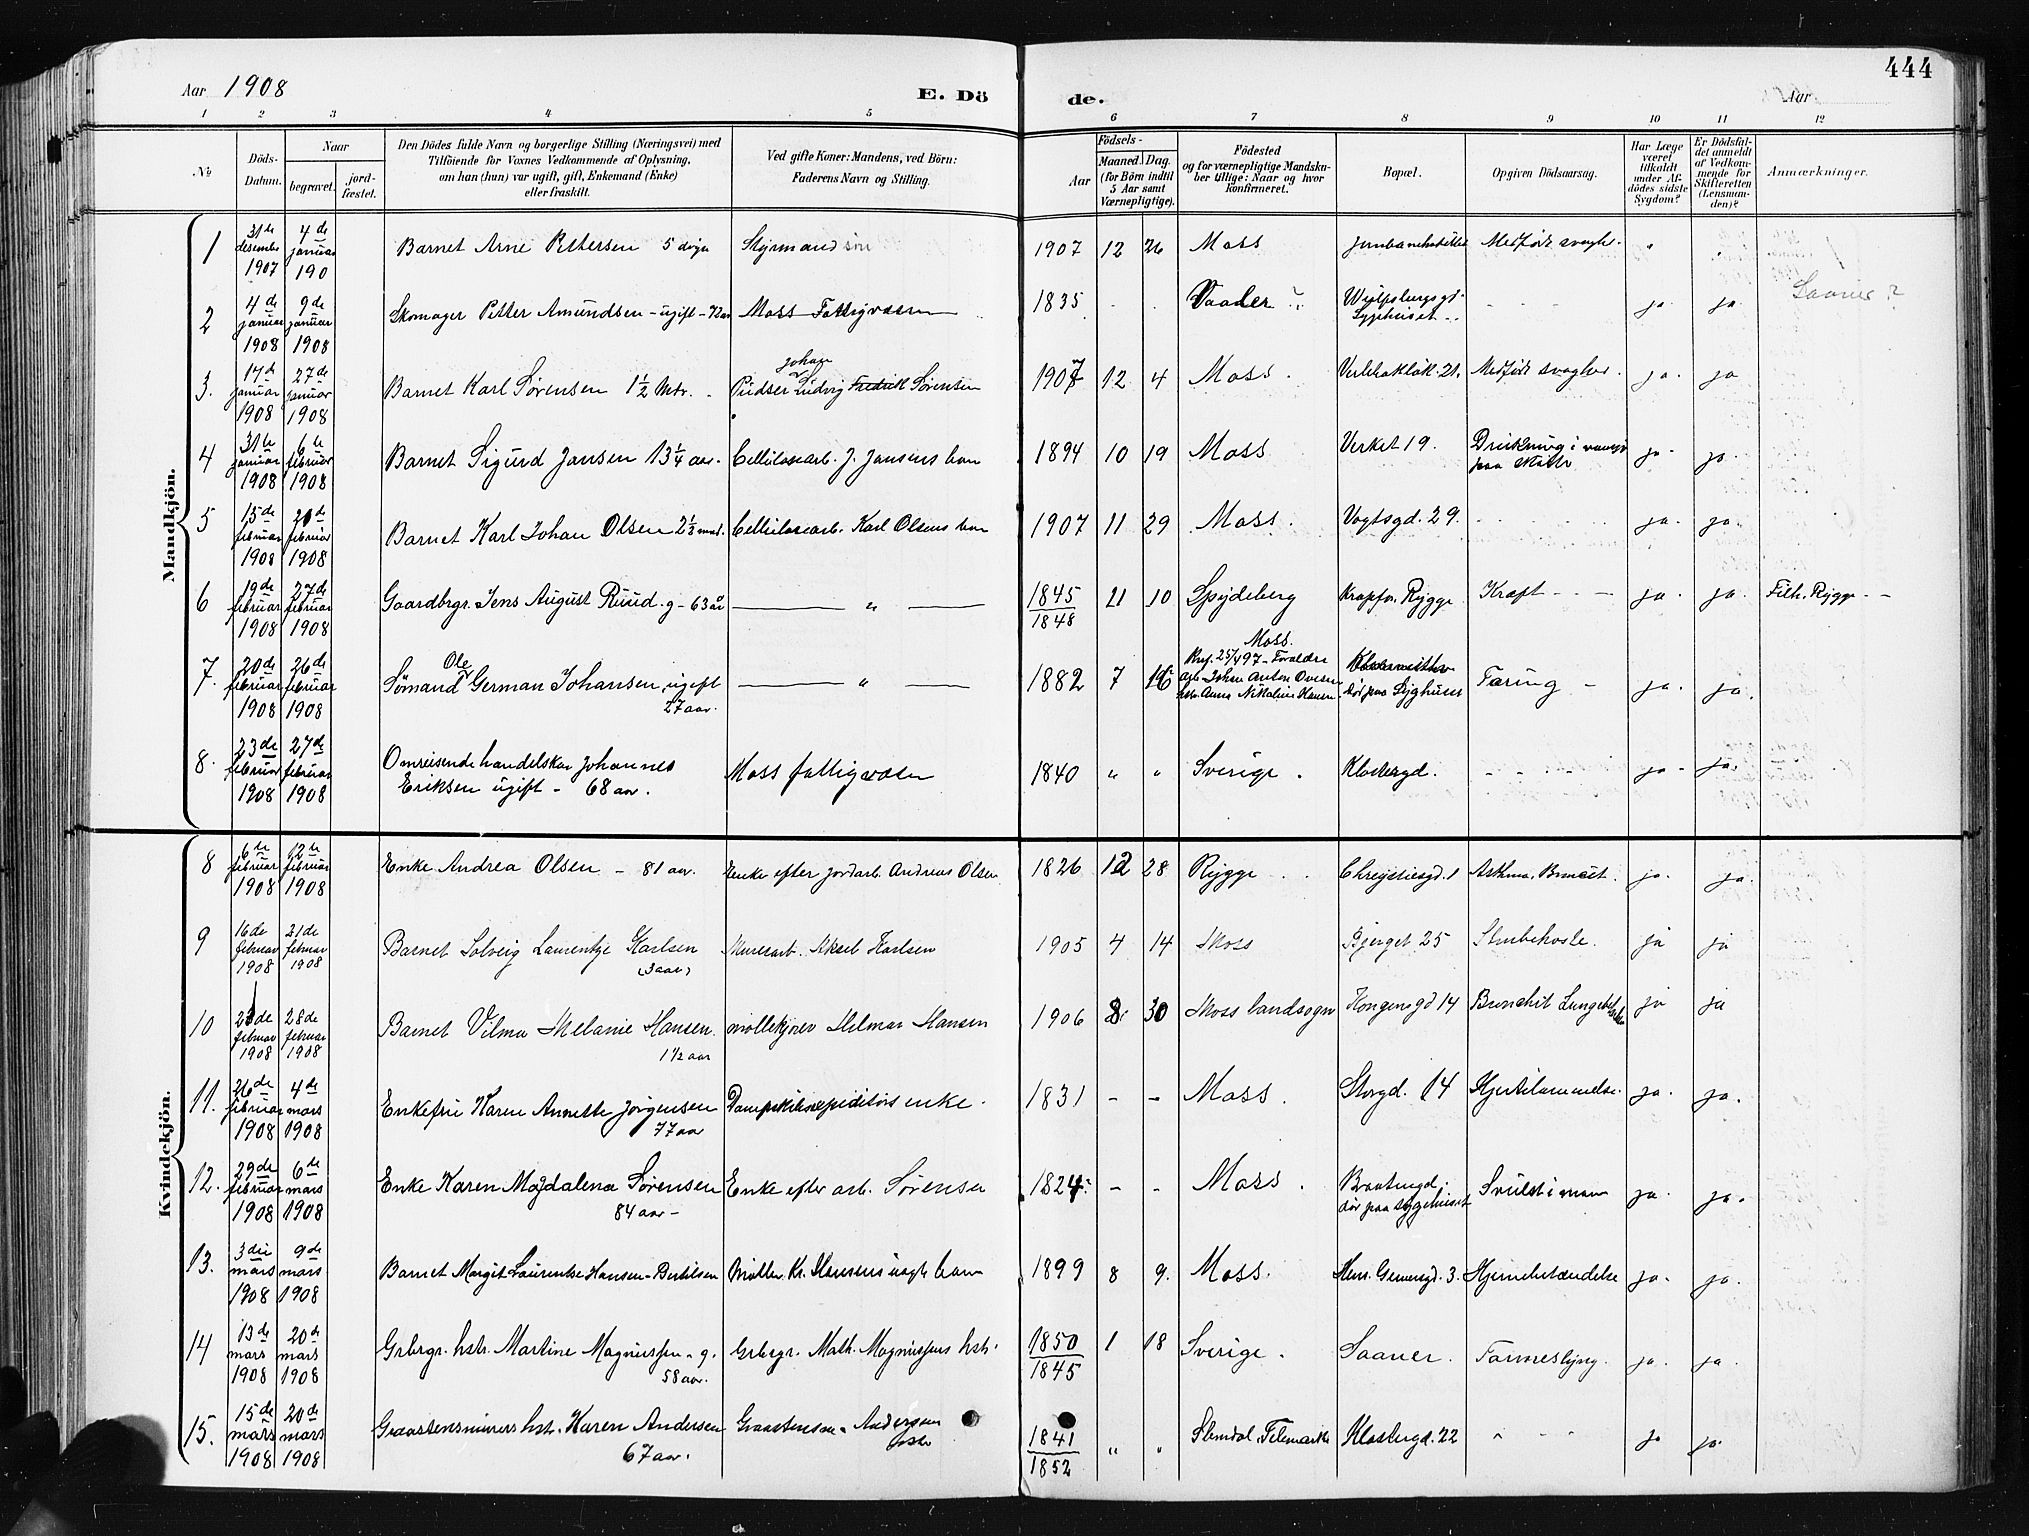 444
Aar 1908
E. Dö de.
Aar
1 2 3 4 5 6 7 8 9 10 11 12
No
Döds-Datum.
Naar
begravet.
jord-fæstet.
Den Dödes fulde Navn og borgerlige Stilling (Næringsvei) med
Tilföiende for Voxnes Vedkommende af Oplysning,
om han (hun) var ugift, gift, Enkemand (Enke)
eller fraskilt.
Ved gifte Koner: Mandens, ved Börn:
Faderens Navn og Stilling.
Födsels-
Aar
Maaned. Dag.
(for Börn indtil
5 Aar samt
Værnepligtige).
Födested
og for værnepligtige Mandska-
ber tillige: Naar og hvor
konfirmeret.
Bopæl.
Opgiven Dödsaarsag.
Har Læge
været
tilkaldt
under Af-
dödes sidste
Sygdom?
Er Dödsfal-
det anmeldt
af Vedkom-
mende for
Skifteretten
(Lensman-
den)?
Anmærkninger.
Mandkjön.
1 31te desember 1907 4de januar 190 Barnet Arne Pettersen 5 døgn Styrmand søn 1907 12 26 Moss Jernbanehotellet Medfødt svaghed
2 4de januar 1908 9de januar 1908 Skomager Petter Amundsen - ugift - 72 aar Moss Fattigvæsen 1835 - - Vaaler Wulfsbergsgt. Sygehuset - - - ja ja Saaner?
3. 17de januar 1908 27de januar 1908 Barnet Karl Sørensen 1½ Mdr. Pudser Johan Ludvig Fredrik Sørensen 1907 12 4 Moss. Verlebakløk. 21. Medfødt svaghed. ja. ja
4 31te januar 1908 6te februar 1908 Barnet Sigurd Jansen 13¼ aar. Cellulosearb. J. Jansens barn 1894 10 19 Moss Verket 19. Drukning i vansjø paa skøiter ja. ja.
5 15de februar 1908 20de februar 1908 Barnet Karl Johan Olsen 2⅓ mnd. Cellulosearb. Karl Olsens barn 1907 11 29 Moss. Vogtsgd. 29. - - - ja. ja.
6 19de februar 1908 27de februar 1908 Gaardbrgr. Jens August Ruud. g - 63 aar — „ — 1845 1848 21 10 Spydeberg Kropfos. Rygge Kræft - - - ja. ja. Filh. Rygge - -
7. 20de februar 1908 26de februar 1908 Sömand Ole German Johansen, ugift 27 aar. — „ — 1882 7 16 Moss. Knf. 25/4 97 - Forældre arb. Johan Anton Ovesen hstr. Anna Nikoline Hansen dør paa Sygehuset Tæring - ja. ja.
8. 23de februar 1908 27de februar 1908 Omreisende handelskar Johannes Eriksen ugift - 68 aar. Moss fattigvæsen 1840 „ „ Sverige. Klostergd. - - - ja - ja.
Kvindekjön.
8 6te februar 1908 12te februar 1908 Enke Andrea Olsen - 81 aar. Enke efter jordarb. Andreas Olsen 1826 12 28 Rygge Chrystiesgd. 1 Asthma. Broncit. ja. ja.
9 16de februar 1908 21de februar 1908 Barnet Solveig Laurentze Karlsen (3 aar) Murerarb. Aksel Karlsen 1905 4 14 Moss Bjerget 25 Strubehoste. ja ja
10 23de februar 1908 28de februar 1908 Barnet Vilma Melanie Hansen. 1½ aar møllekjører Hilmar Hansen 1906 8 30 Moss landsogn Kongensgd 14 Bronchit Lungebetændelse ja ja
11. 26de februar 1908 4de mars 1908 Enkefru Karen Annette Jörgensen 77 aar Dampskibsexpeditørs enke. 1831 - - Moss. Storgd. 14 Hjertelammelse. ja. ja.
12. 29de februar 1908 6te mars 1908 Enke Karen Magdalena Sørensen 84 aar - Enke efter arb. Sørensen 1824 - - Moss. Braatengd. dør paa sygehuset Svulst i maven ja. ja.
13. 3die mars 1908 9de mars 1908 Barnet Margit Laurentse Hansen - Bertilsen Møller Kr. Hansens uægte barn 1899 8 9. Moss. Henr. Gernersgd. 3. Hjernebetændelse ja. ja.
14 13de mars 1908 20de mars 1908 Grbrgr. hstr. Martine Magnussen - g. 58 aar. Grbrgr. Math. Magnussens hstr. 1850 1845 1 18 Sverige. Saaner. Tarmeslyng. ja. ja.
15. 15de mars 1908 20de mars 1908 Graastensmurers hst. Karen Andersen 67 aar. Graastensm. Andersen hstr 1841 1852 „ „ Slemdal, Telemarken Klostergd. 22 - - - ja ja.